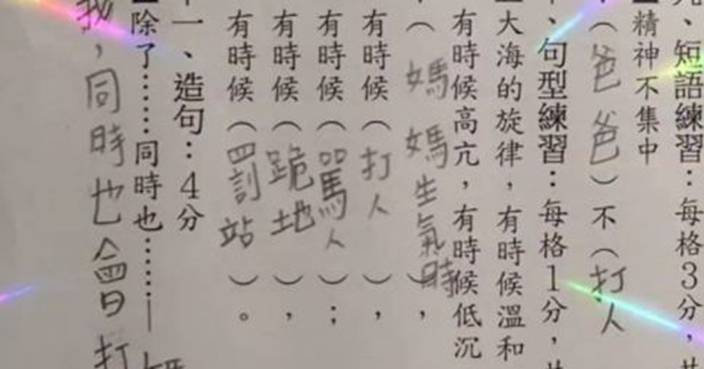 九、短語練習：每格3分，
■精神不集中
（爸爸）不（打人
、句型練習：每格1分，
大海的旋律，有時候溫和
有時候高亢，有時候低沉
（媽媽生氣時），
有時候（打人），
有時候（罵人）；
有時候（跪地），
有時候（罰站）。
十一、造句：4分
■除了……同時也……
我，同時也會打